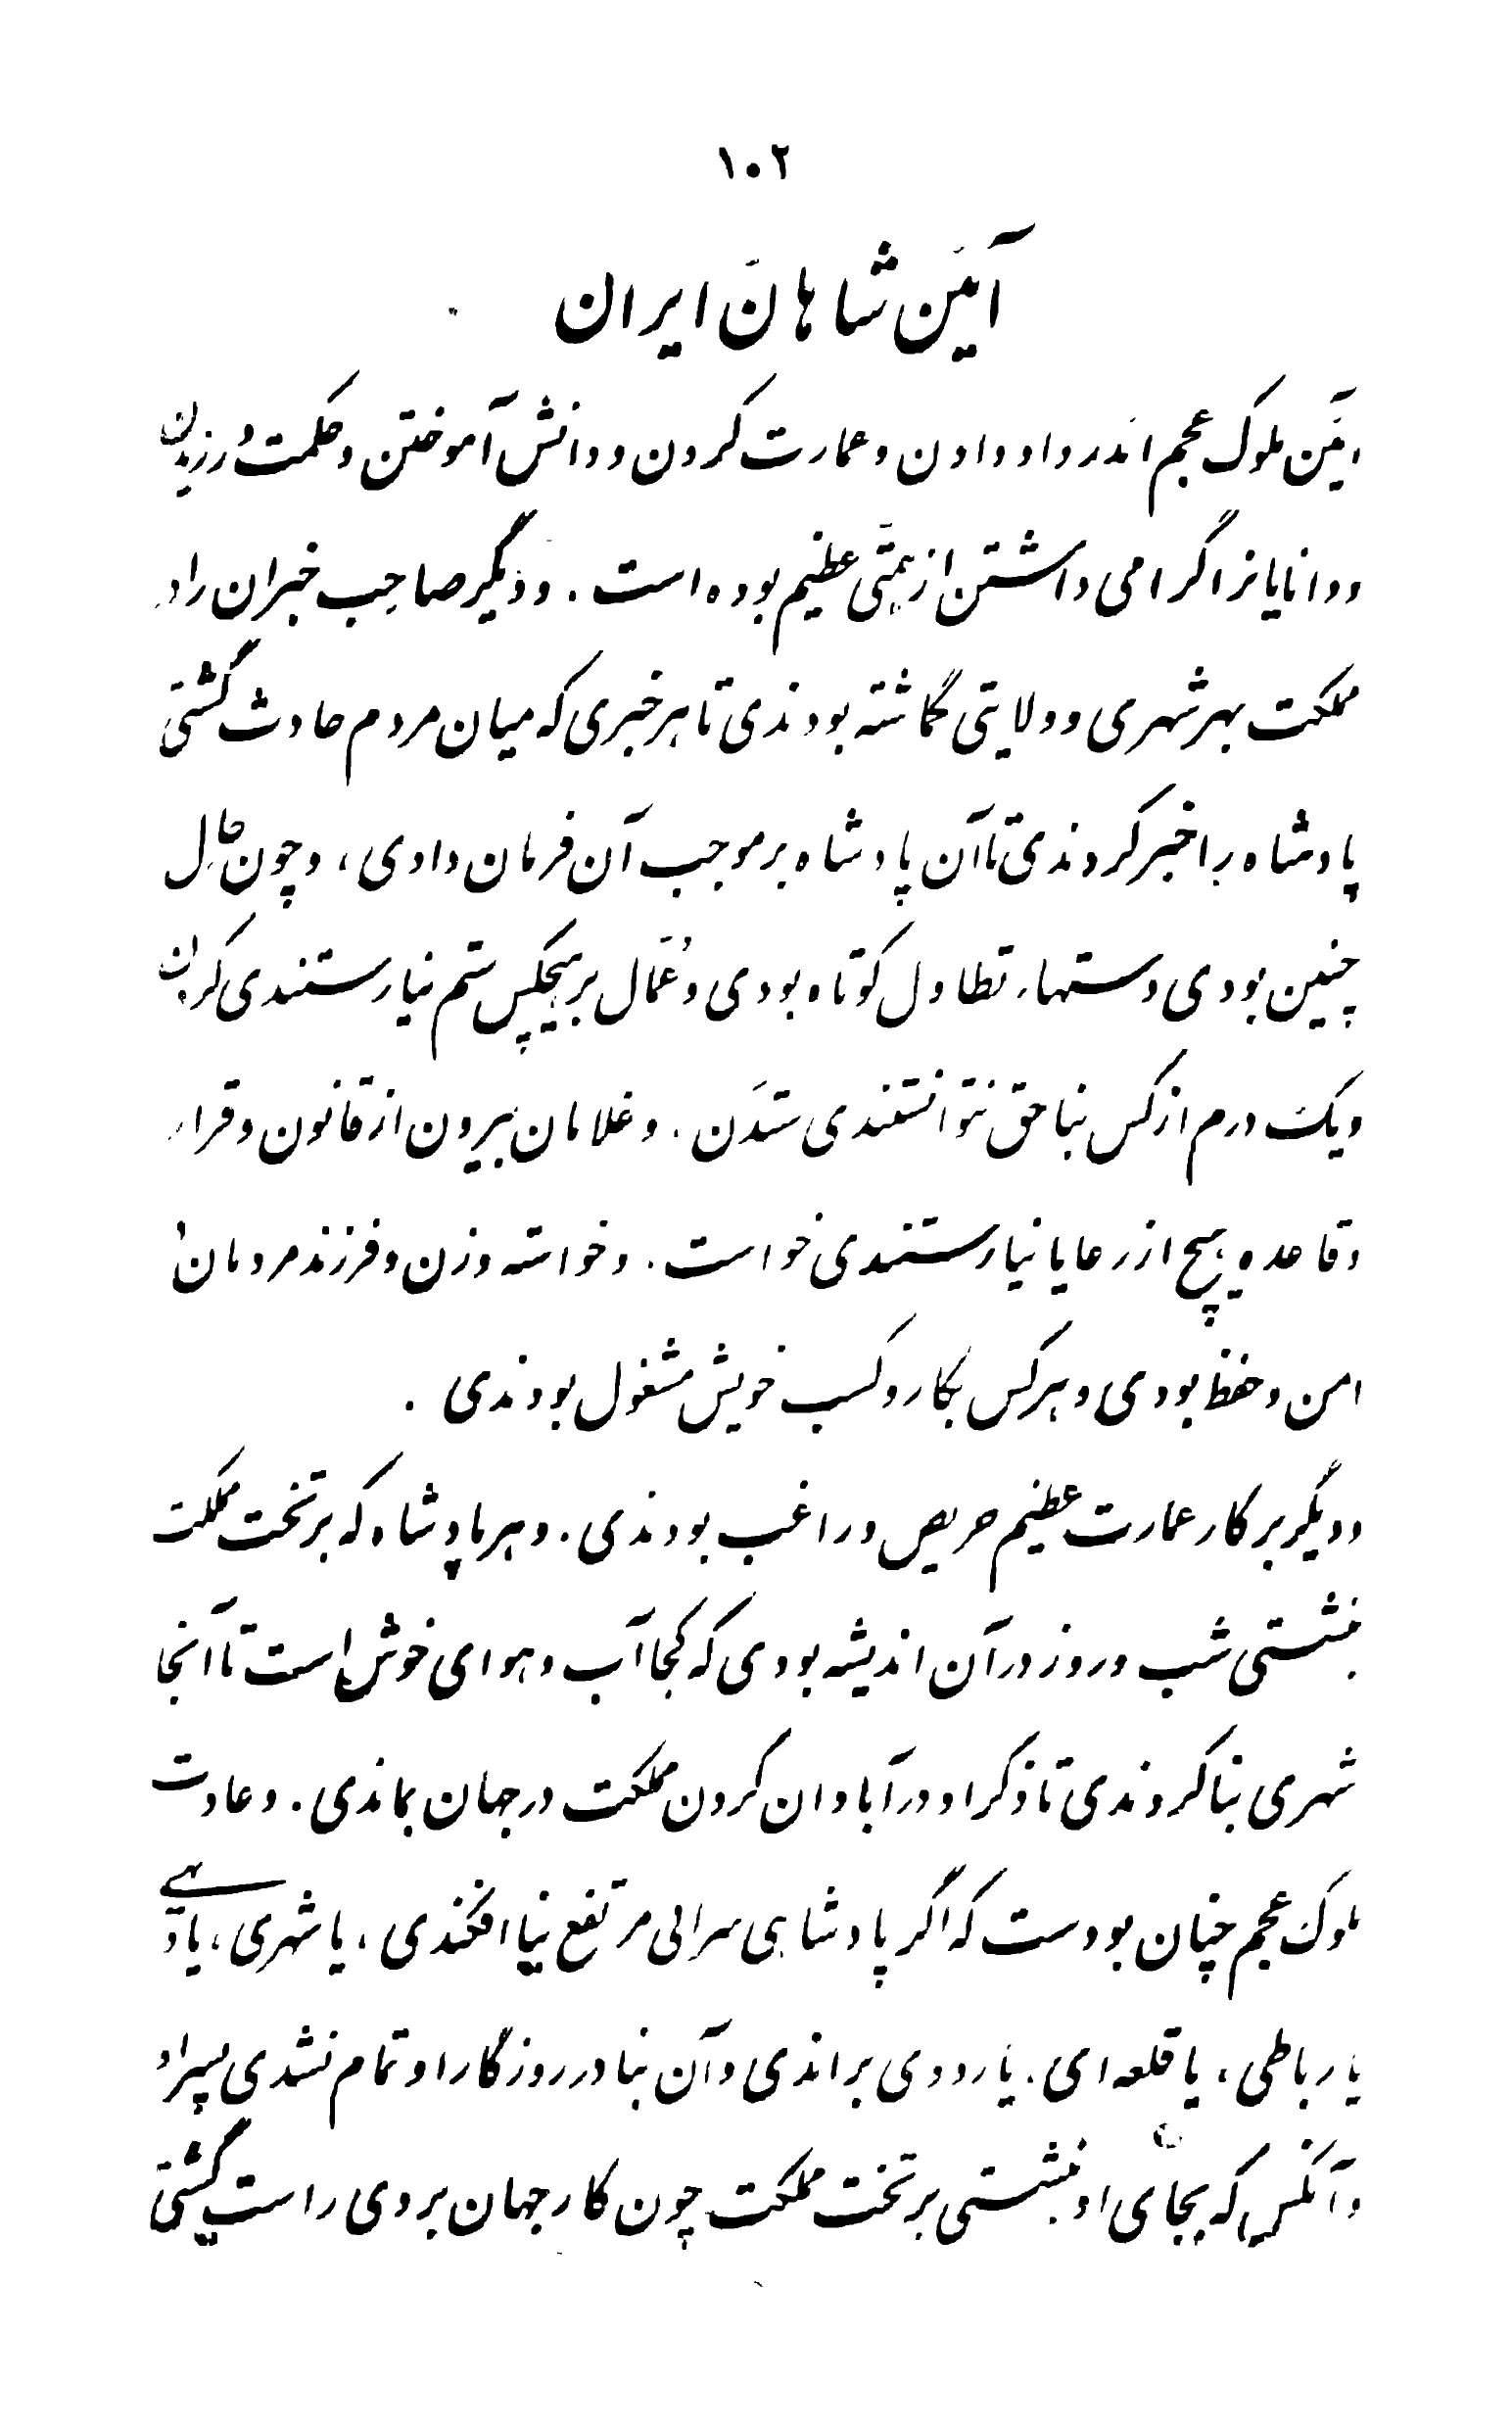 ۱۰۲
آئین شاهان ایران
آئین ملوک عجم اندر داد دادن و عمارت کردن و دانش آموختن و حکمت ورزیدن
و دانایانرا گرامی داشتن از همّتی عظیم بوده است. و دیگر صاحب خبران را در
مملکت بهر شهری و ولایتی گماشته بودندی تا هر خبری که میان مردم حادث گشتی
پادشاه را خبر کردندی تا آن پادشاه بر موجب آن فرمان دادی، و چون حال
چنین بودی دستهاء تطاول کوتاه بودی و عُمّال بر هیچکس ستم نیارستندی کردن
و یک درم از کس بناحق نتوانستندی ستدَن. و غلامان بیرون از قانون و قرار
و قاعده هیچ از رعایا نیارستندی خواست. و خواسته و زن و فرزند مردمان در
امن و حفظ بودی و هر کس بکار و کسب خویش مشغول بودندی.
و دیگر بر کار عمارت عظیم حریص و راغب بودندی. و هر پادشاه که بر تخت مملکت
بنشستی شب و روز در آن اندیشه بودی که کجا آب و هوای خوش است تا آنجا
شهری بنا کردندی تا ذکر او در آبادان کردن مملکت در جهان بماندی. و عادت
ملوک عجم چنان بودست که اگر پادشاهی سرائی مرتفع بنا افکندی، یا شهری، یا دیهی
یا رباطی، یا قلعه ای. یا رودی براندی و آن بنا در روزگار او تمام نشدی پسر او
و آنکس که بجای او بنشستی بر تخت مملکت چون کار جهان بر وی راست گشتی